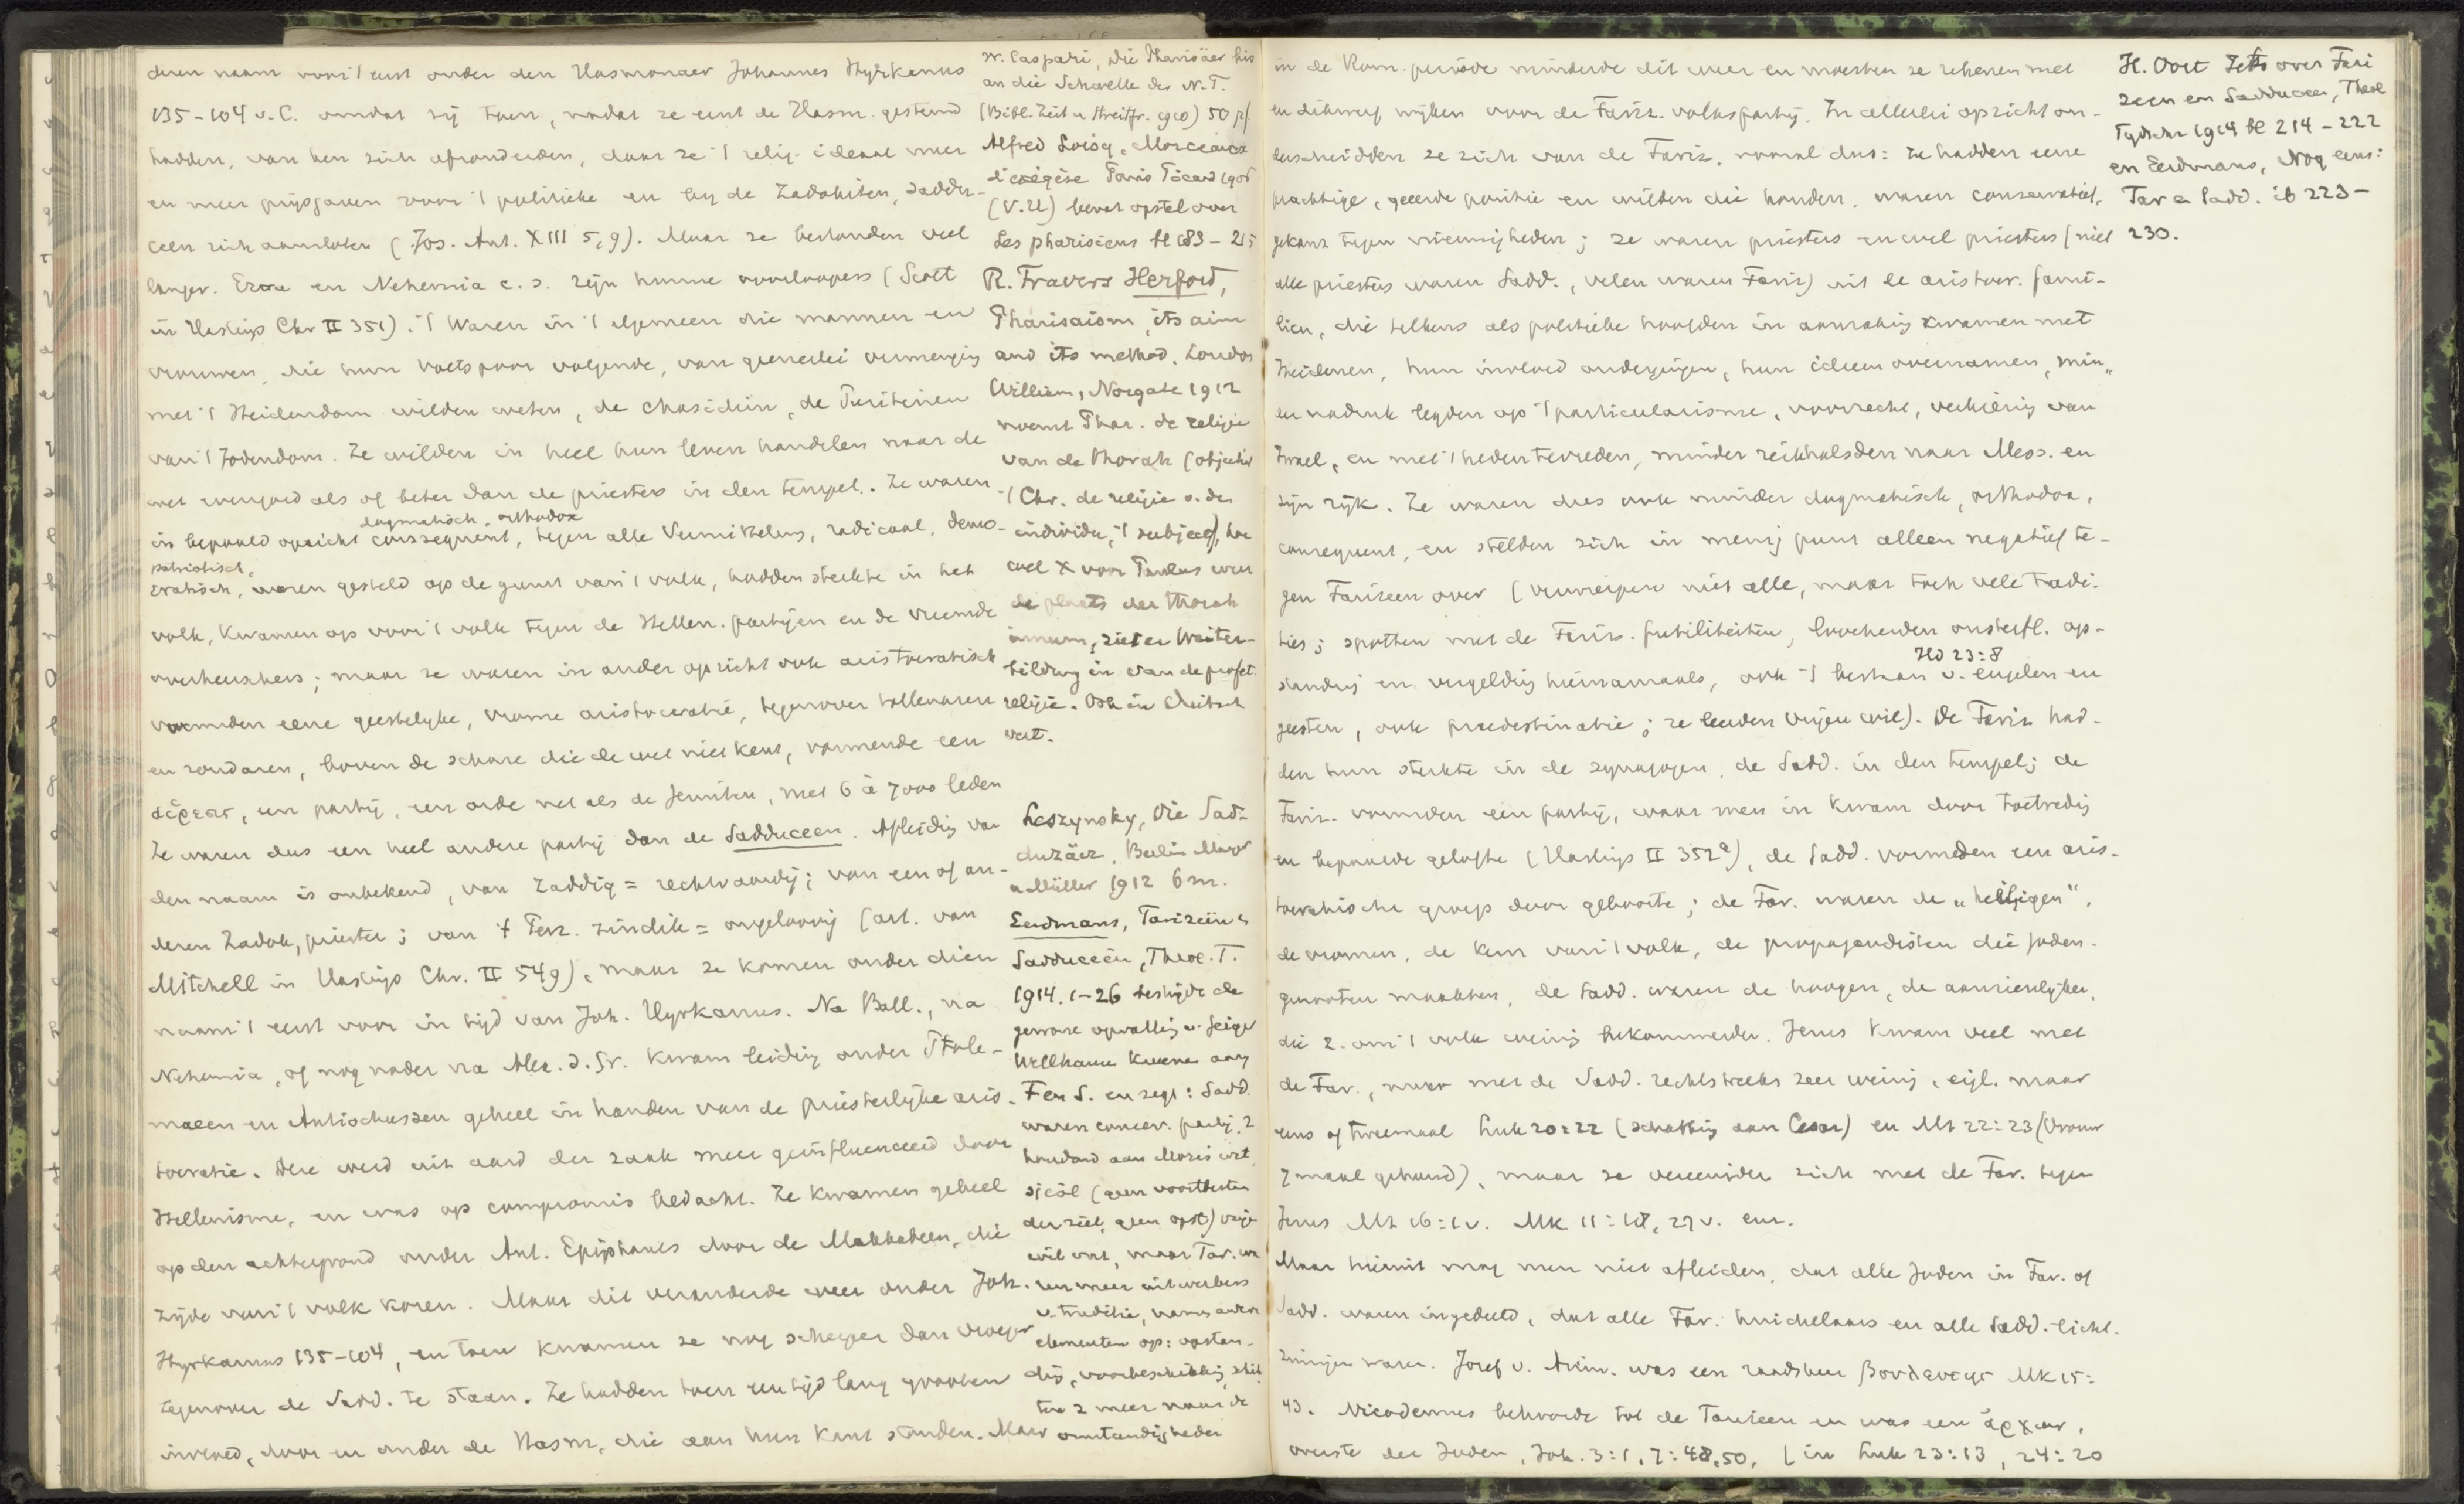 deren naam voor 't eerst onder den Hasmonaer Johannes Hyrkanus
135-104 v. C. omdat zij toen, nadat ze eerst de Hasm. gesteund
hadden, van hen zich afzonderden, daar ze 't relig. ideaal meer
en meer prijsgaven voor 't politieke en bij de Zadokiten, Saddu-
ceen zich aansloten (Jos. Ant. XIII 5, 9). Maar ze bestonden veel
langer. Ezra en Nehemia c. s. zijn hunne voorloopers (Scott
in Hastings Chr II 351). 't Waren in 't algemeen die mannen en
vrouwen, die hun voetspoor volgende, van geenerlei vermenging
met 't Heidendom wilden weten, de Chasidim, de Puriteinen
van 't Jodendom. Ze wilden in heel hun leven handelen naar de
wet evengoed als of beter dan de priesters in den tempel. Ze waren
dogmatisch, orthodox
in bepaald opzicht consequent, tegen alle vermikkelens, radicaal, demo-
patriotisch,
cratisch, waren gesteld op de gunst van 't volk, hadden sterkte in het
volk, kwamen op voor 't volk tegen de Hellen. partijen en de vreemde
overheerschers; maar ze waren in ander opzicht ook aristocratisch
vormden eene geestelijke, vrome aristocratie, tegenover tollenaren
en zondaren, boven de schare die de wet niet kent, vormende een
αἵρεσις, een partij, een orde net als de Jezuiten, met 6 à 7000 leden
Ze waren dus een heel andere partij dan de Sadduceen. Afleiding van
den naam is onbekend, van zaddiq = rechtvaardig; van een of an-
deren Zadok, priester; van 't Perz. zindik = ongeloovig (art. van
Mitchell in Hastings Chr. II 549), maar ze komen onder dien
naam 't eerst voor in tijd van Joh. Hyrkanus. Na Ball., na
Nehemia, of nog nader na Alex. d. Gr. kwam leiding onder Ptole-
maeen en Antiochussen geheel in handen van de priesterlijke aris-
tocratie. Deze werd uit aard der zaak meer geinfluenceerd door
Hellenisme, en was op compromis bedacht. Ze kwamen geheel
op den achtergrond onder Ant. Epiphanes door de Makkabeen, die
zijde van 't volk kozen. Maar dit veranderde weer onder Joh.
Hyrkanus 135-104, en toen kwamen ze nog scherper dan vroeger
tegenover de Sadd. te staan. Ze hadden toen een tijd lang grooten
invloed, door en onder de Hasm, die aan hun kant stonden. Maar
W. Caspari, Die Pharisäer bis
an die Schwelle des N.T.
(Bibl. Zeit u Streitfr. 1910) 50 pf.
Alfred Loisy, Morceaux
d'exégèse Paris Picard 1906
(V.U) bevat opstel over
Les pharisiens bl 183-215
R. Travers Herford,
Pharisaism, its aim
and its method. London
William, Norgate 1912
noemt Phar. de religie
van de Thorah (objectief
't Chr. de religie v. des
individu, 't subject), hoe
wel X voor Paulus weer
de plaats der Thorah
innam, ziet er Weiter-
bildung in van de profet.
religie. Ook in Duitsch
vert.
Leszynsky, Die Sad-
duzäer, Berlin Mayer
u Müller 1912 6 m.
Eerdmans, Farizeën en
Sadduceën, Theol. T.
1914. 1-26 bestrijdt de
gewone opvatting v. Geiger
Wellhausen Kuenen aang
F en S. en zegt: Sadd.
waren conserv. partij, 2
houdend aan Mozes wet
sjeôl (geen voortbestaan
der ziel, geen opst) vrije
wil enz, maar Far. wa
ren meer uitwerkers
v. traditie, namen andere
elementen op: opstan-
ding, voorbeschikking, schik
ten z meer naar de
omstandigheden
in de Rom. periode minderde dit weer en moesten ze rekenen met
en dikwerf wijken voor de Fariz. volkspartij. In allerlei opzicht on-
derscheidden ze zich van de Fariz. vooral dus: Ze hadden eene
prachtige, geeerde positie en wilden die houden, waren conservatief,
gekant tegen nieuwigheden; ze waren priesters en wel priesters (niet
alle priesters waren Sadd., velen waren Fariz) uit de aristocr. fami-
lien, die telkens als politieke hoofden in aanraking kwamen met
Heidenen, hun invloed ondergingen, hun ideeen overnamen, min„
en nadruk legden op 't particularisme, voorrecht, verkiezing van
Israel, en met 't heden tevreden, minder reikhalsden naar Mess. en
zijn rijk. Ze waren dus ook minder dogmatisch, orthodox,
consequent, en stelden zich in menig punt alleen negatief te-
gen Farizeen over (verwerpen niet alle, maar toch vele tradi-
ties; spotten met de Fariz. futiliteiten, loochenden onsterfl. op-
Hd 23:8
standing en vergelding hiernamaals, ook 't bestaan v. engelen en
geesten, ook praedestinatie; ze leerden vrijen wil). De Fariz had-
den hun sterkte in de synagogen, de Sadd. in den tempel; de
Fariz. vormden een partij, waar men in kwam door toetreding
en bepaalde gelofte (Hastings II 352a), de Sadd. vormden een aris-
tocratische groep door geboorte; de Far. waren de „heiligen",
de vromen, de kern van 't volk, de propagandisten die Joden-
genooten maakten, de Sadd. waren de hoogen, de aanzienlijken,
die z. om 't volk weinig bekommerden. Jezus kwam veel met
de Far., maar met de Sadd. rechtstreeks zeer weinig, eigl. maar
eens of tweemaal Luk 20:22 (schatting aan Cesar) en Mt 22:23 (Vrouw
7 maal gehuwd), maar ze vereenigden zich met de Far. tegen
Jezus Mt 16:1 v. Mk 11:18, 27 v. enz.
Maar hieruit mag men niet afleiden, dat alle Joden in Far. of
Sadd. waren ingedeeld, dat alle Far. huichelaars en alle Sadd. licht-
zinnigen waren. Jozef v. Arim. was een raadsheer βουλευτης Mk 15:
43. Nicodemus behoorde tot de Farizeen en was een ἄρχων,
overste der Joden, Joh. 3:1, 7:48,50, (in Luk 23:13, 24:20
H. Oort Iets over Fari
zeen en Sadduceen, Theol
Tijdschr 1914 bl 214-222
en Eerdmans, Nog eens:
Far en Sadd. ib 223-
230.